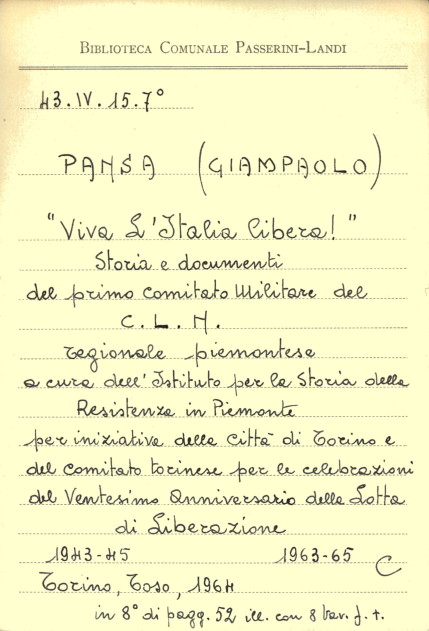 BIBLIOTECA COMUNALE PASSERINI-LANDI
43.IV.15.7°
PANSA (GIAMPAOLO)
"Viva L'Italia libera!"
Storia e documenti
del primo Comitato Militare del
C. L. N.
regionale piemontese
a cura dell'Istituto per la Storia della
Resistenza in Piemonte
per iniziativa della Città di Torino e
del Comitato torinese per le celebrazioni
del Ventesimo Anniversario della Lotta
di Liberazione
1943-45 1963-65 C
Torino, Toso, 1964
in 8° di pagg. 52 ill. con 8 tav. f. t.